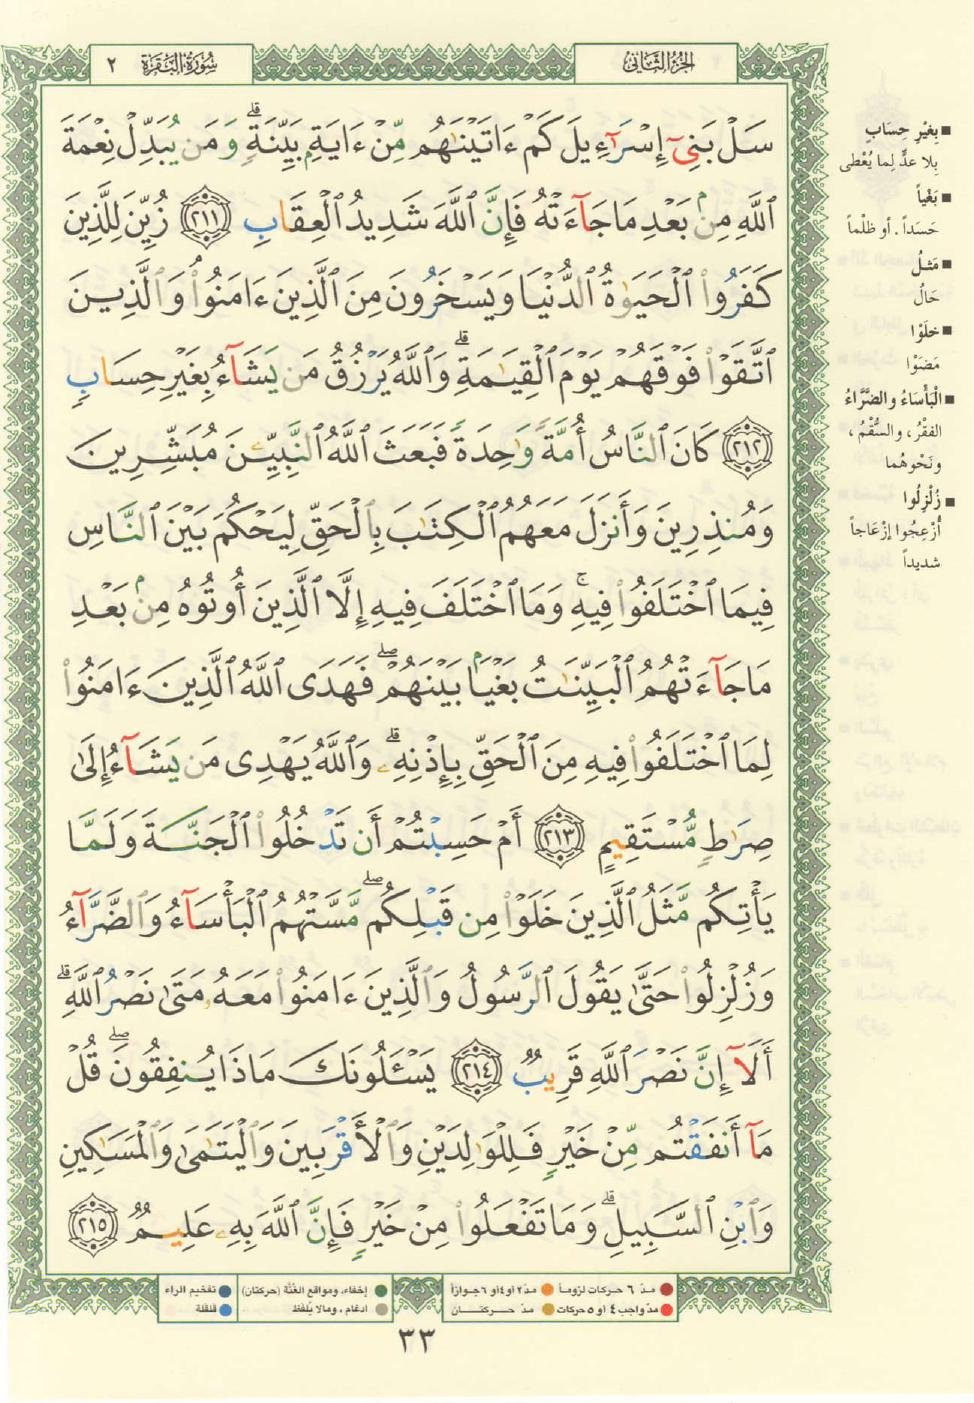 الجزء الثاني
سورة البقرة ٢
سَلْ بَنِىٓ إِسْرَٰٓءِيلَ كَمْ ءَاتَيْنَٰهُم مِّنْ ءَايَةٍۭ بَيِّنَةٍۗ وَمَن يُبَدِّلْ نِعْمَةَ
ٱللَّهِ مِنۢ بَعْدِ مَا جَآءَتْهُ فَإِنَّ ٱللَّهَ شَدِيدُ ٱلْعِقَابِ ٢١١ زُيِّنَ لِلَّذِينَ
كَفَرُوا۟ ٱلْحَيَوٰةُ ٱلدُّنْيَا وَيَسْخَرُونَ مِنَ ٱلَّذِينَ ءَامَنُوا۟ۘ وَٱلَّذِينَ
ٱتَّقَوْا۟ فَوْقَهُمْ يَوْمَ ٱلْقِيَٰمَةِۗ وَٱللَّهُ يَرْزُقُ مَن يَشَآءُ بِغَيْرِ حِسَابٍ
٢١٢ كَانَ ٱلنَّاسُ أُمَّةً وَٰحِدَةً فَبَعَثَ ٱللَّهُ ٱلنَّبِيِّـۧنَ مُبَشِّرِينَ
وَمُنذِرِينَ وَأَنزَلَ مَعَهُمُ ٱلْكِتَٰبَ بِٱلْحَقِّ لِيَحْكُمَ بَيْنَ ٱلنَّاسِ
فِيمَا ٱخْتَلَفُوا۟ فِيهِۚ وَمَا ٱخْتَلَفَ فِيهِ إِلَّا ٱلَّذِينَ أُوتُوهُ مِنۢ بَعْدِ
مَا جَآءَتْهُمُ ٱلْبَيِّنَٰتُ بَغْيًۢا بَيْنَهُمْۖ فَهَدَى ٱللَّهُ ٱلَّذِينَ ءَامَنُوا۟
لِمَا ٱخْتَلَفُوا۟ فِيهِ مِنَ ٱلْحَقِّ بِإِذْنِهِۦۗ وَٱللَّهُ يَهْدِى مَن يَشَآءُ إِلَىٰ
صِرَٰطٍ مُّسْتَقِيمٍ ٢١٣ أَمْ حَسِبْتُمْ أَن تَدْخُلُوا۟ ٱلْجَنَّةَ وَلَمَّا
يَأْتِكُم مَّثَلُ ٱلَّذِينَ خَلَوْا۟ مِن قَبْلِكُمۖ مَّسَّتْهُمُ ٱلْبَأْسَآءُ وَٱلضَّرَّآءُ
وَزُلْزِلُوا۟ حَتَّىٰ يَقُولَ ٱلرَّسُولُ وَٱلَّذِينَ ءَامَنُوا۟ مَعَهُۥ مَتَىٰ نَصْرُ ٱللَّهِۗ
أَلَآ إِنَّ نَصْرَ ٱللَّهِ قَرِيبٌ ٢١٤ يَسْـَٔلُونَكَ مَاذَا يُنفِقُونَۖ قُلْ
مَآ أَنفَقْتُم مِّنْ خَيْرٍ فَلِلْوَٰلِدَيْنِ وَٱلْأَقْرَبِينَ وَٱلْيَتَٰمَىٰ وَٱلْمَسَٰكِينِ
وَٱبْنِ ٱلسَّبِيلِۗ وَمَا تَفْعَلُوا۟ مِنْ خَيْرٍ فَإِنَّ ٱللَّهَ بِهِۦ عَلِيمٌ ٢١٥
■ بِغَيْرِ حِسَابٍ
بِلا عدٍّ لِما يُعْطى
■ بَغْياً
حَسَداً . أو ظلْماً
■ مَثلُ
حَالُ
■ خلَوْا
مَضَوْا
■ الْبَأْسَاءُ والضَّرَّاءُ
الفقْرُ ، والسُّقْمُ ،
ونَحْوهُما
■ زُلْزِلُوا
أُزْعِجُوا إزْعَاجاً
شديداً
مدّ ٦ حركات لزوماً مدّ٢ او٤او ٦جوازاً
مدّ واجب٤ او ٥حركات مدّ حركتان
إخفاء، ومواقع الغُنَّة (حركتان)
ادغام ، ومالا يُلفَظ
تفخيم الراء
قلقلة
٣٣